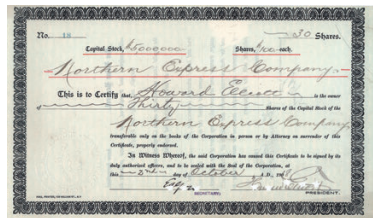 No. 18 30 Shares.
Capital Stock, $5000000 Shares, $100 each.
Northern Express Company
This is to Certify that, Howard Elliott is the owner
of Thirty Shares of the Capital Stock of the
Northern Express Company,
transferable only on the books of the Corporation in person or by Attorney on surrender of this
Certificate, properly endorsed.
In Witness Whereof, the said Corporation has caused this Certificate to be signed by its
duly authorized officers, and to be sealed with the seal of the Corporation, at
this 3rd day of October A.D., 190
SECRETARY. PRESIDENT.